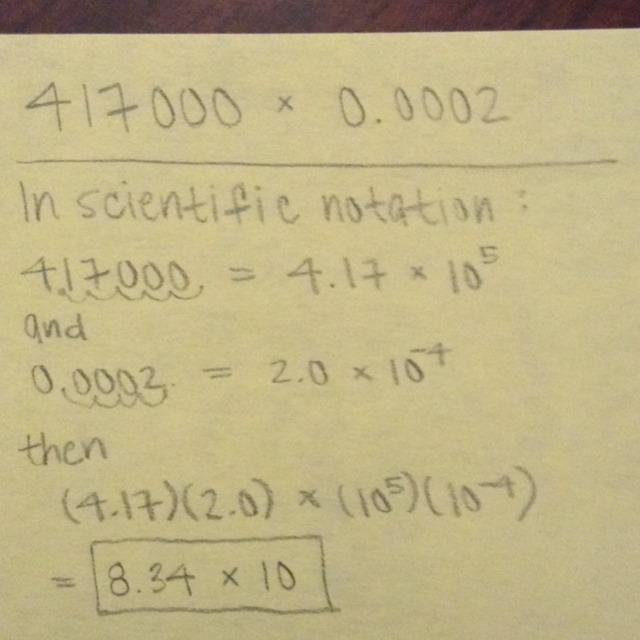 417000 × 0.0002
In scientific notation:
4.17000. = 4.17 × 10⁵
and
0.0002. = 2.0 × 10⁻⁴
then
(4.17)(2.0) × (10⁵)(10⁻⁴)
= 8.34 × 10